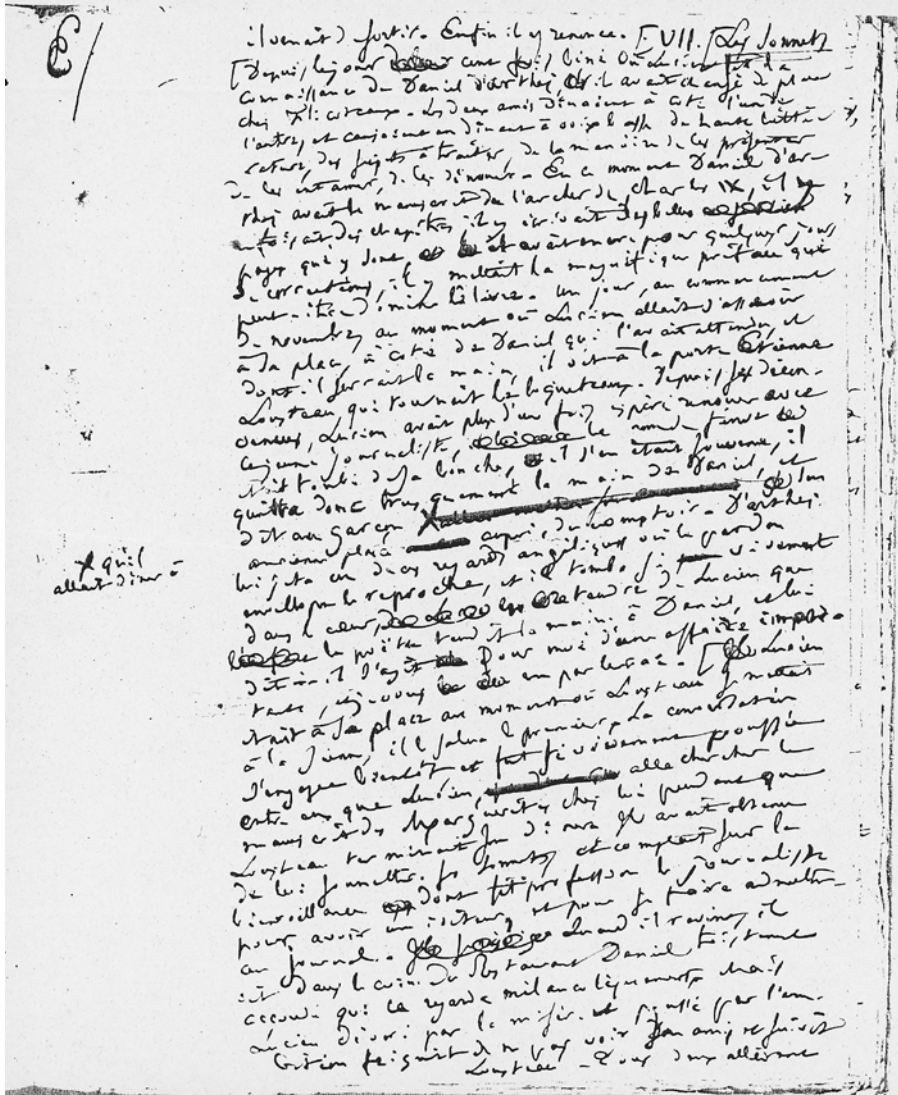 E/
il venait d sortir. Enfin il y renonce. [VII. [Les Sonnets
[Depuis le jour une fois liée où Lucien fit la
connaissance de Daniel d'arthez, il avait changé de place
chez Flicoteaux. Les deux amis dinaient à coté l'un de
l'autre, et causaient en dinant à voix basse de haute litté-
rature, des sujets à traiter, de la manière de les présenter
de les entamer, de les dénouer. En ce moment Daniel d'ar-
thez avait le manuscrit de l'archer de Charles IX, il y
refaisait des chapitres, il y écrivait des belles
pages qui y sont, et avait encore pour quelques jours
de corrections, il y mettait la magnifique préface qui
peut-être domine le livre. Un jour, au commencement
de novembre, au moment où Lucien allait s'asseoir
à sa place, à coté de Daniel qui l'avait attendu, et
dont il serrait la main, il vit à la porte Etienne
Lousteau, qui tournait le bec
avec
ce jeune journaliste, le
était tombé de sa bouche, il s'en était souvenu, il
quitta donc brusquement la main de Daniel, et
dit au garçon son
ancienne place auprès du comptoir. D'arthez
lui jeta un de ces regards angéliques où le pardon
enveloppe le reproche, et il tomba si vivement
dans le cœur tendre de Lucien que
le poëte tendit la main à Daniel, et lui
dit : — il s'agit pour moi d'une affaire impor-
tante, je vous en parlerai. [Lucien
était à sa place au moment où Lousteau se mettait
à la sienne, il le salua le premier, la conversation
s'engagea bientôt et fut si vivement poussée
entre eux que Lucien alla chercher le
manuscrit des Marguerites chez lui pendant que
Lousteau terminait son diner. Il avait obtenu
de lui soumettre ses sonnets, et comptait sur la
bienveillance dont fit profession le journaliste
pour avoir un éditeur, et pour se faire admettre
au journal. Quand il revint, il
vit dans le coin du Restaurant Daniel tristement
accoudé qui le regarda mélancoliquement. Mais
Lucien dévoré par la misère et poussé par l'am-
bition feignit de ne pas voir son ami et suivit
Lousteau. — Tous deux allèrent
X qu'il
allait diner à